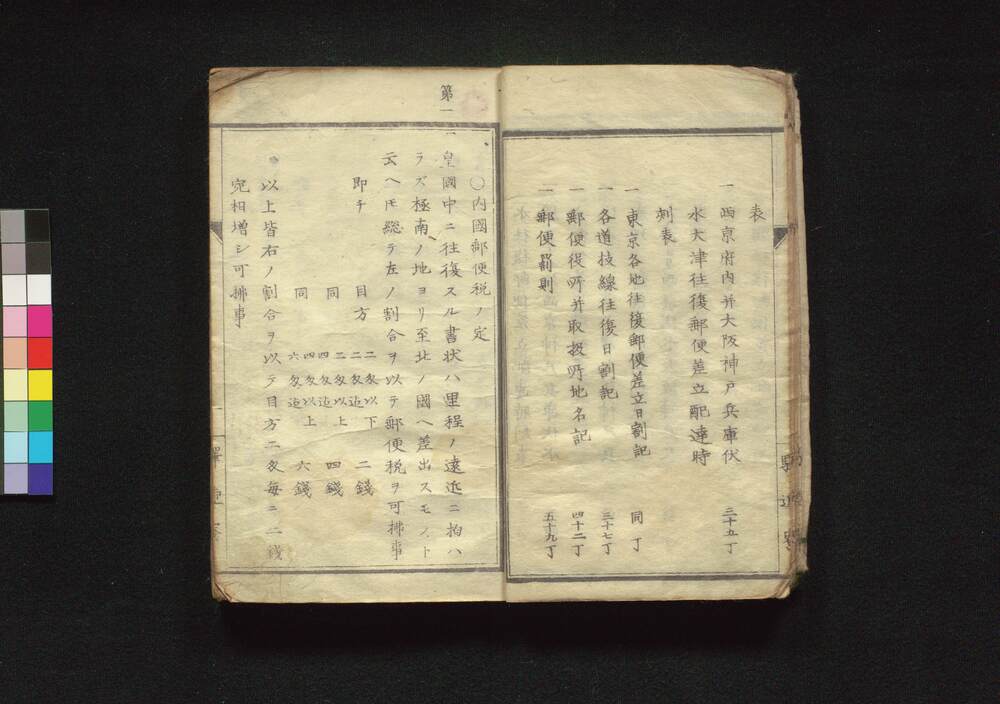 表
一 西京府内并大阪神戸兵庫伏
水大津往復郵便差立配達時
刻表 三十五丁
一 東京各地往復郵便差立日割記 同丁
一 各道技線往復日割記 三十七丁
一 郵便役所并取扱所地名記 四十二丁
一 郵便罰則 五十九丁
驛逓寮
〇内國郵便税ノ定
第一
一 皇國中ニ往復スル書状ハ里程ノ遠近ニ拘ハ
ラズ極南ノ地ヨリ至北ノ國ヘ差出スモノト
云ヘモ総テ左ノ割合ヲ以テ郵便税ヲ可拂事
即チ 目方 二匁以下 二錢
同 二匁以上四匁迄 四錢
同 四匁以上六匁迄 六錢
以上皆右ノ割合ヲ以テ目方二匁毎ニ二錢
宛相増シ可拂事
驛逓寮